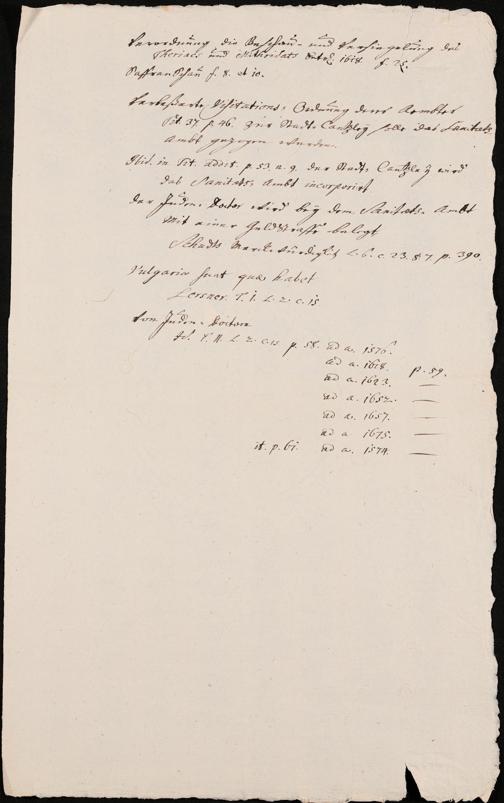 Verordnung die Beschau- und Versiegelung des
Theriac und Mithridats betr. 1618. f. 75.
Saffran Schau f. 8. et 10.
Verbesserte Visitations-Ordnung derer Aembter
Tit 37. p. 46. zur Stadt-Cantzley solle das Sanitäts
Ambt gezogen werden.
Ibid. in Tit. addit. p. 53. n. 9. der Stadt-Cantzley wird
das Sanitäts-Ambt incorporirt
der Juden-Doctor wird bey dem Sanitäts-Ambt
mit einer Geldstraffe belegt
Schudts Merckwürdigkt L. 6. c. 23. § 7 p. 390.
Vulgaria sunt quae habet
Lersner. T. I. L. 2. c. 15
Von Juden-Doctorn
Id. T. II. L. 2. c. 15 p. 58. ad a. 1576.
ad a. 1618. p. 59.
ad a. 1623. —
ad a. 1652. —
ad a. 1657. —
ad a. 1675. —
it. p. 61. ad a. 1574. —